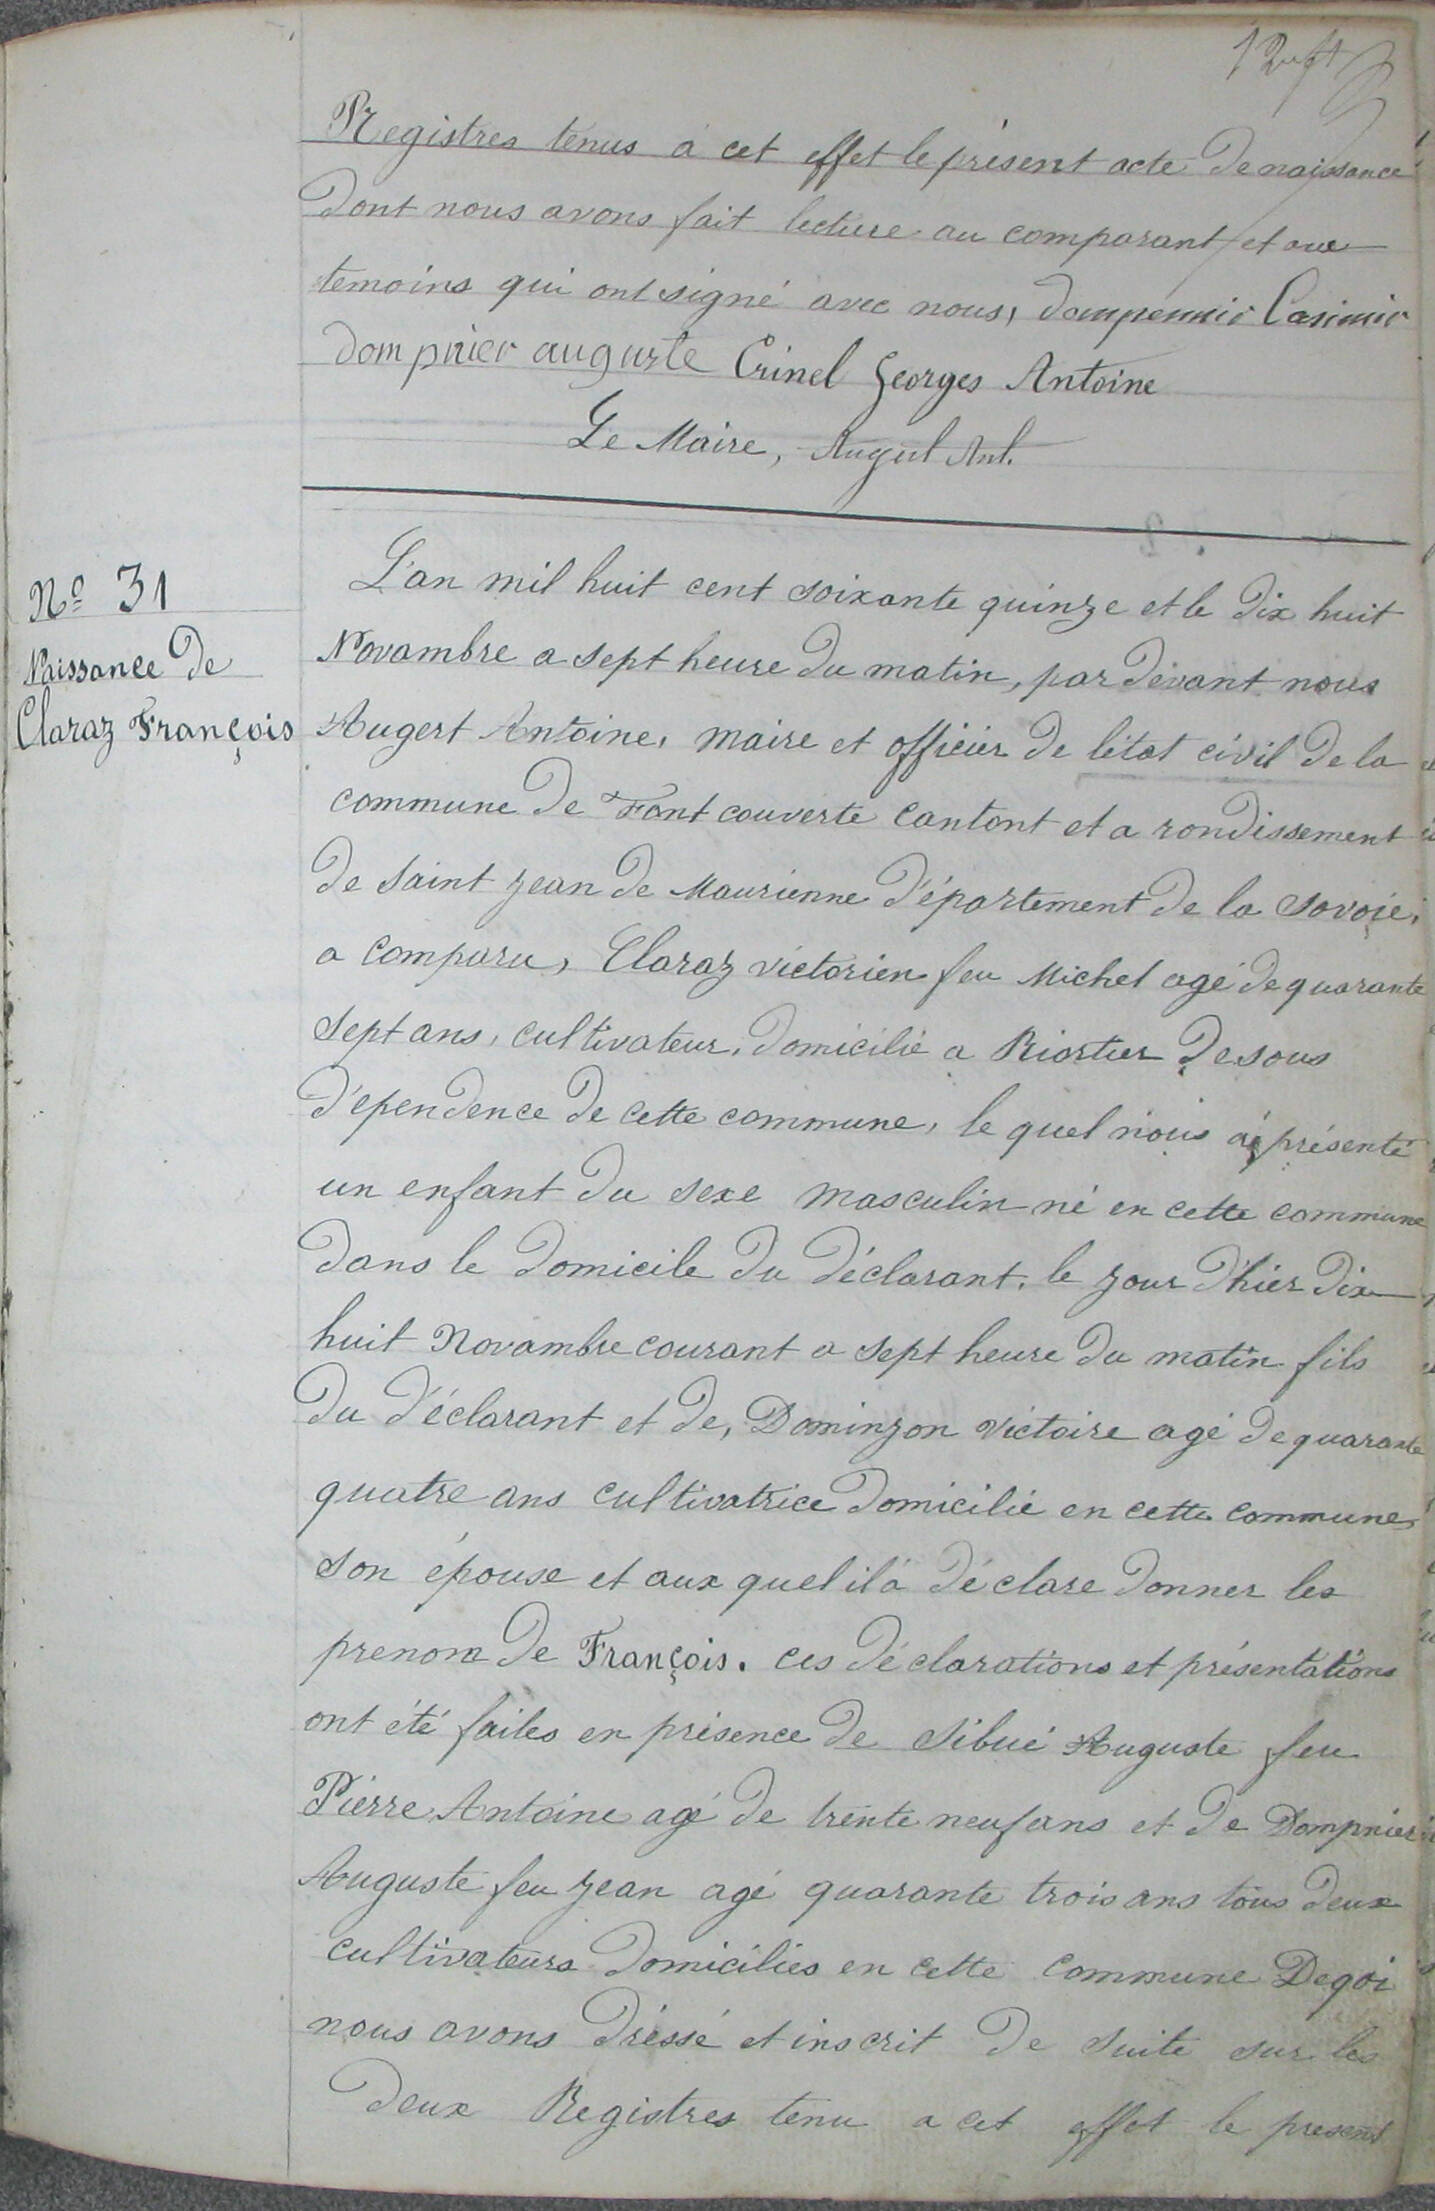 Registres tenus à cet effet le présent acte de naissance
dont nous avons fait lecture au comparant et aux
temoins qui ont signé avec nous, dompnnier Casimir
dompnier auguste Crinel Georges Antoine
Le Maire, Augert Ant.
Nº 31
Naissance de
Claraz François
L'an mil huit cent soixante quinze et le dix huit
Novambre a sept heure du matin, par devant nous
Augert Antoine, maire et officier de létat civil de la
commune de Fontcouverte Cantont et a rondissement
de Saint jean de Maurienne D'épartement de la Savoie,
a comparu, Claraz victorien feu Michel agé de quarante
Sept ans, cultivateur, domicilié a Riortier Desous
D'ependence de cette commune, le quel nous a présenté
un enfant du sexe masculin né en cette commune
dans le domicile du déclarant, le jour d'hier dix
huit Novambre courant a sept heure du matin fils
du d'éclarant et de, Dominjon Victoire agé de quarante
quatre ans cultivatrice domicilié en cette commune,
son épouse et aux quel il à déclare donner les
prenom de François. ces déclarations et présentations
ont été faites en présence de Sibué Auguste feu
Pierre Antoine agé de trente neuf ans et de Dompnier
Auguste feu jean agé quarante trois ans tous deux
cultivateurs domiciliés en cette commune Deqoi
nous avons dréssé et inscrit de suite sur les
deux Registres tenu a cet effet le présent